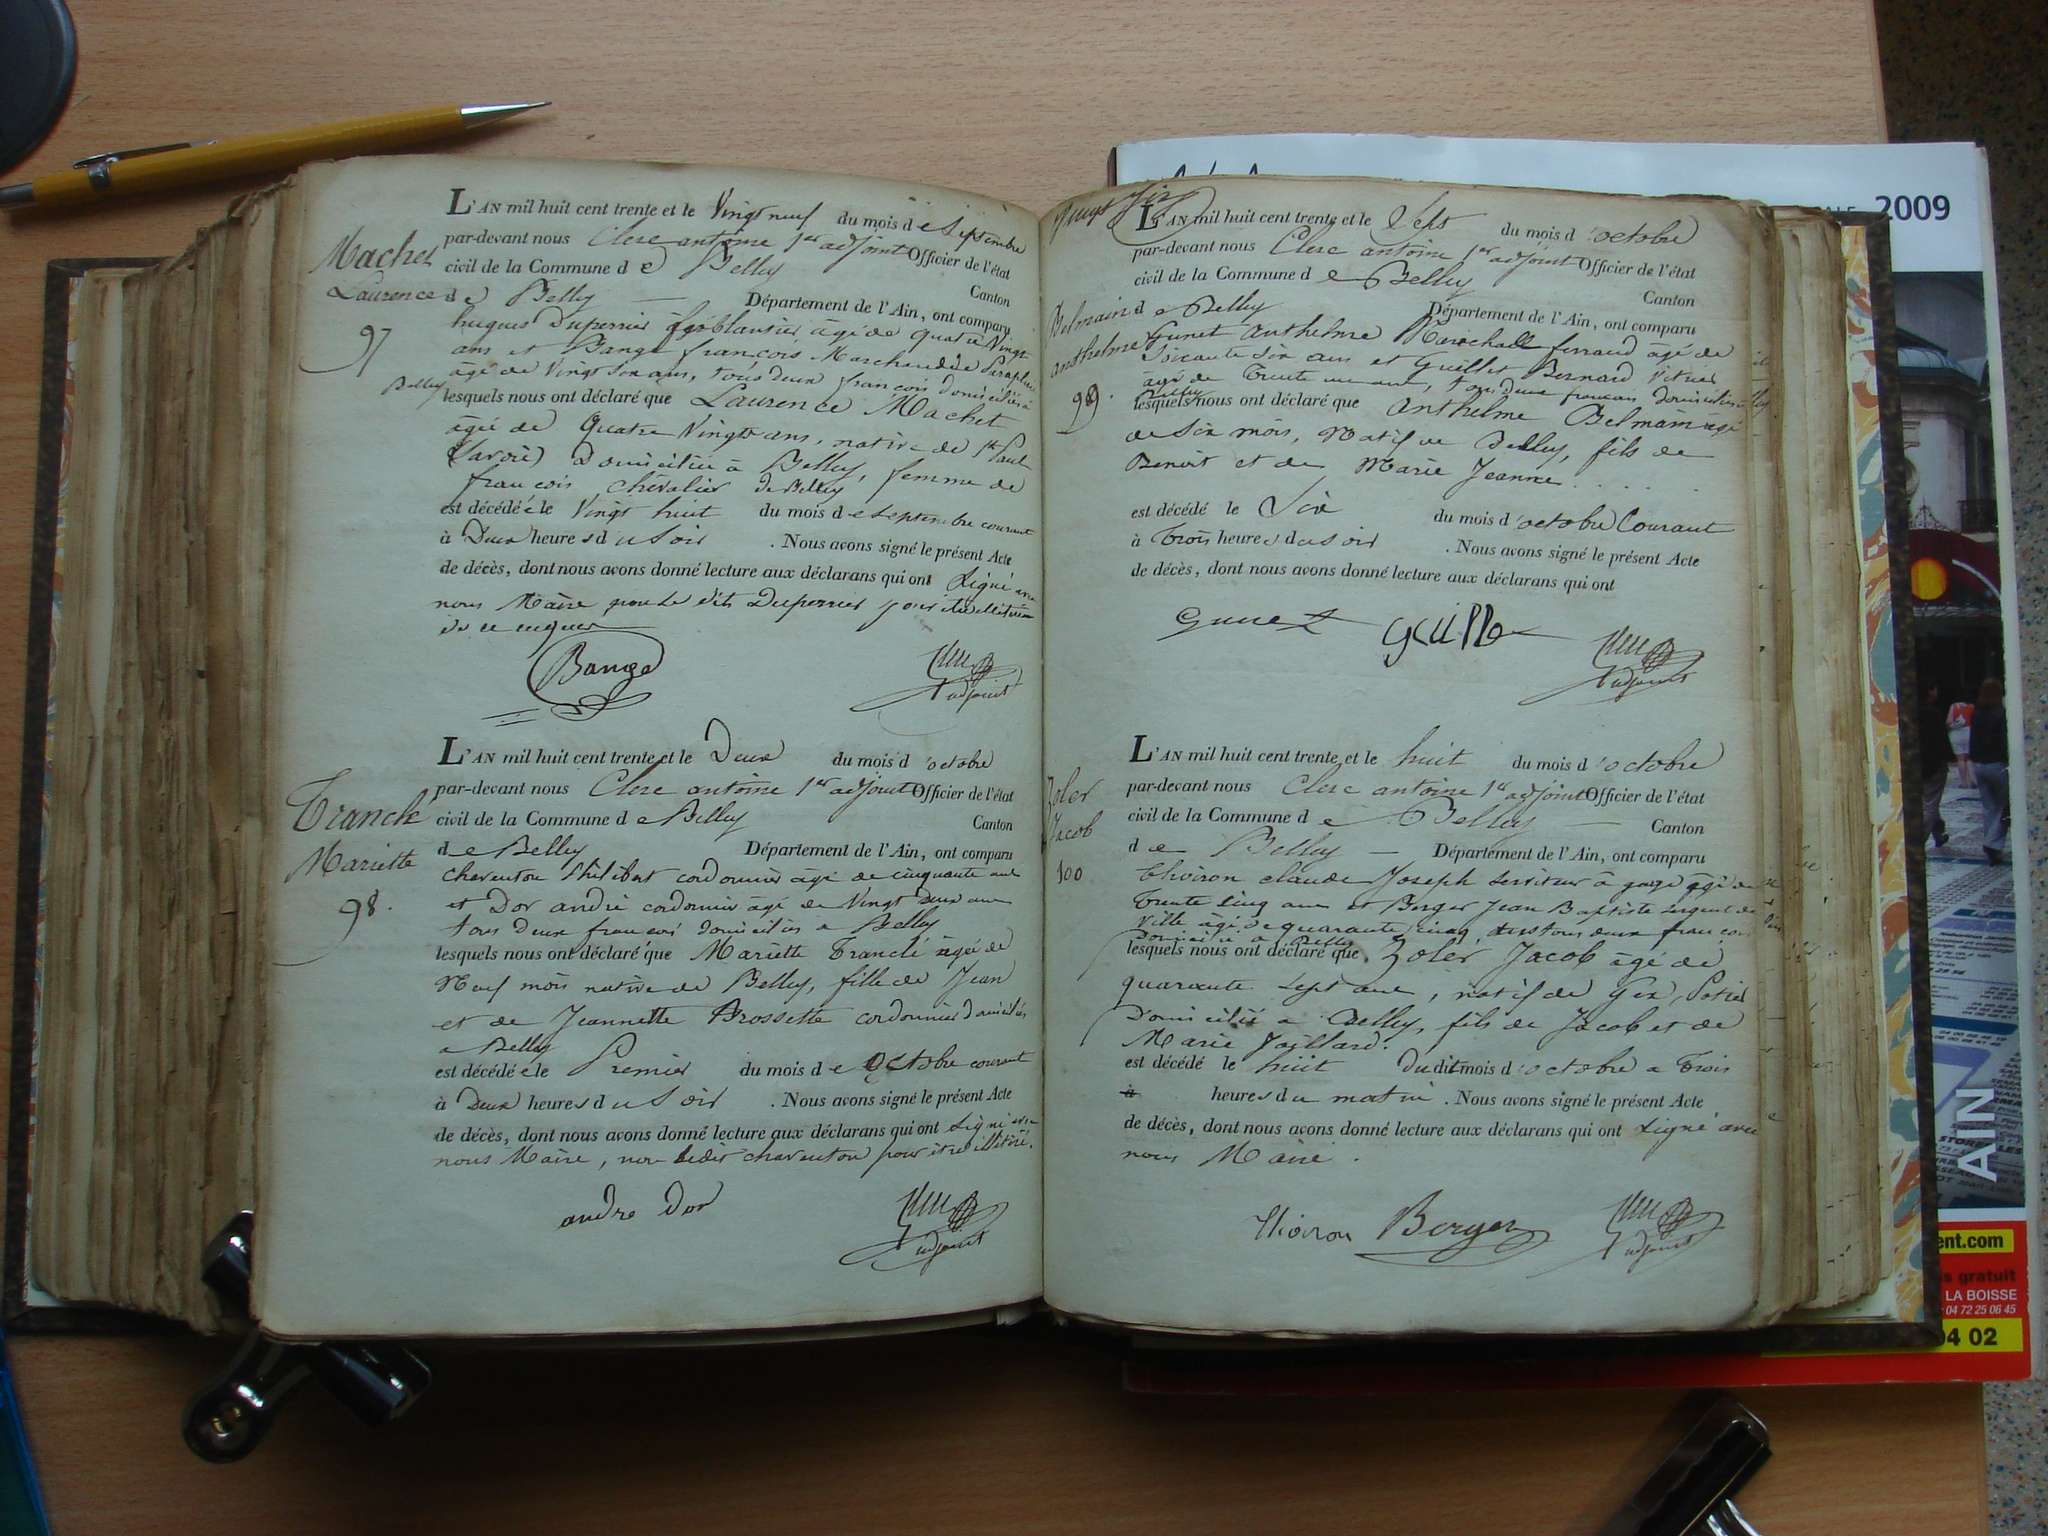 L'AN mil huit cent trente et le Vingt neuf du mois de Septembre
par-devant nous Clerc antoine 1er adjoint Officier de l'état
civil de la Commune de Belley Canton
de Belley Département de l'Ain, ont comparu
hugues Duperrier ferblantier âgé de quatre Vingt
ans et Bange françois Marchand de
âgé de Vingt Six ans, tous deux françois domiciliés à
Belley lesquels nous ont déclaré que Laurence Machet
âgée de Quatre Vingts ans, native de St Paul
(Savoie) Domiciliée à Belley, femme de
françois chevalier de Belley
est décédée le Vingt huit du mois de Septembre courant
à Deux heures du Soir . Nous avons signé le présent Acte
de décès, dont nous avons donné lecture aux déclarans qui ont Signé avec
nous Maire Duperrier
de ce enquis
Bange
adjoint
Machet
Laurence
97
L'AN mil huit cent trente et le Deux du mois d'octobre
par-devant nous Clerc antoine 1er adjoint Officier de l'état
civil de la Commune de Belley Canton
de Belley Département de l'Ain, ont comparu
Charenton Philibert cordonnier âgé de cinquante ans
et Dor andré cordonnier âgé de Vingt Deux ans
tous Deux françois domiciliés à Belley
lesquels nous ont déclaré que Mariette Tranclé agée de
Neuf mois native de Belley, fille de Jean
et de Jeannette Brossette cordonnier domiciliés
a Belley
est décédée le Premier du mois de Octobre courant
à Deux heures du Soir . Nous avons signé le présent Acte
de décès, dont nous avons donné lecture aux déclarans qui ont Signé avec
nous Maire, non ledit charenton pour être illitéré.
andre Dor
adjoint
Tranclé
Mariette
98.
L'AN mil huit cent trente et le Sept du mois d'octobre
par-devant nous Clerc antoine 1er adjoint Officier de l'état
civil de la Commune de Belley Canton
de Belley Département de l'Ain, ont comparu
Gunet Anthelme Marechall ferrand âgé de
Soixante Six ans et Guillet Bernard Vitrier
âgé de Trente un ans, tous deux français domiciliés à
Belley lesquels nous ont déclaré que Anthelme Belmain agé
de Six mois, Natif de Belley, fils de
Benoit et de Marie Jeanne . . . .
est décédé le Six du mois d'octobre Courant
à Trois heures du Soir . Nous avons signé le présent Acte
de décès, dont nous avons donné lecture aux déclarans qui ont
Gunet
adjoint
Belmain
anthelme
99.
L'AN mil huit cent trente et le huit du mois d'octobre
par-devant nous Clerc antoine 1er adjoint Officier de l'état
civil de la Commune de Belley Canton
de Belley Département de l'Ain, ont comparu
Thoiron claude Joseph Serviteur à gage âgé de
Trente Cinq ans et Berger Jean Baptiste Sergent de
Ville âgé de quarante cinq ans tous deux françois
Domiciliés à Belley
lesquels nous ont déclaré que Zoler Jacob âgé de
quarante Sept ans, natif de Gex, Potier
Domicilié a Belley, fils de Jacob et de
Marie Vaillard.
est décédé le huit Dudit mois d'octobre a Trois
à heures du matin . Nous avons signé le présent Acte
de décès, dont nous avons donné lecture aux déclarans qui ont Signé avec
nous Maire.
Thoiron Berger
adjoint
Zoler
Jacob
100
2009
AIN
ent.com
is gratuit
LA BOISSE
04 72 25 06 45
04 02